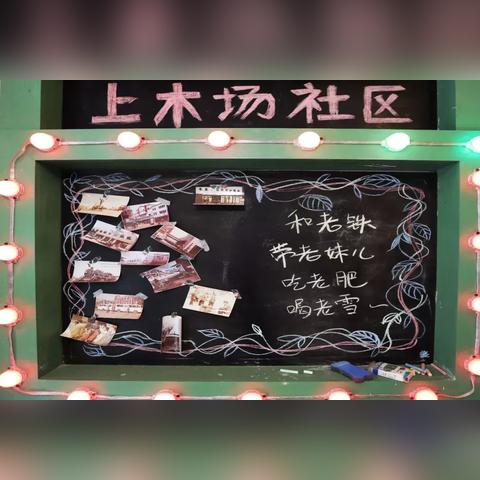 上木场社区
和老铁
带老妹儿
吃老肥
喝老雪